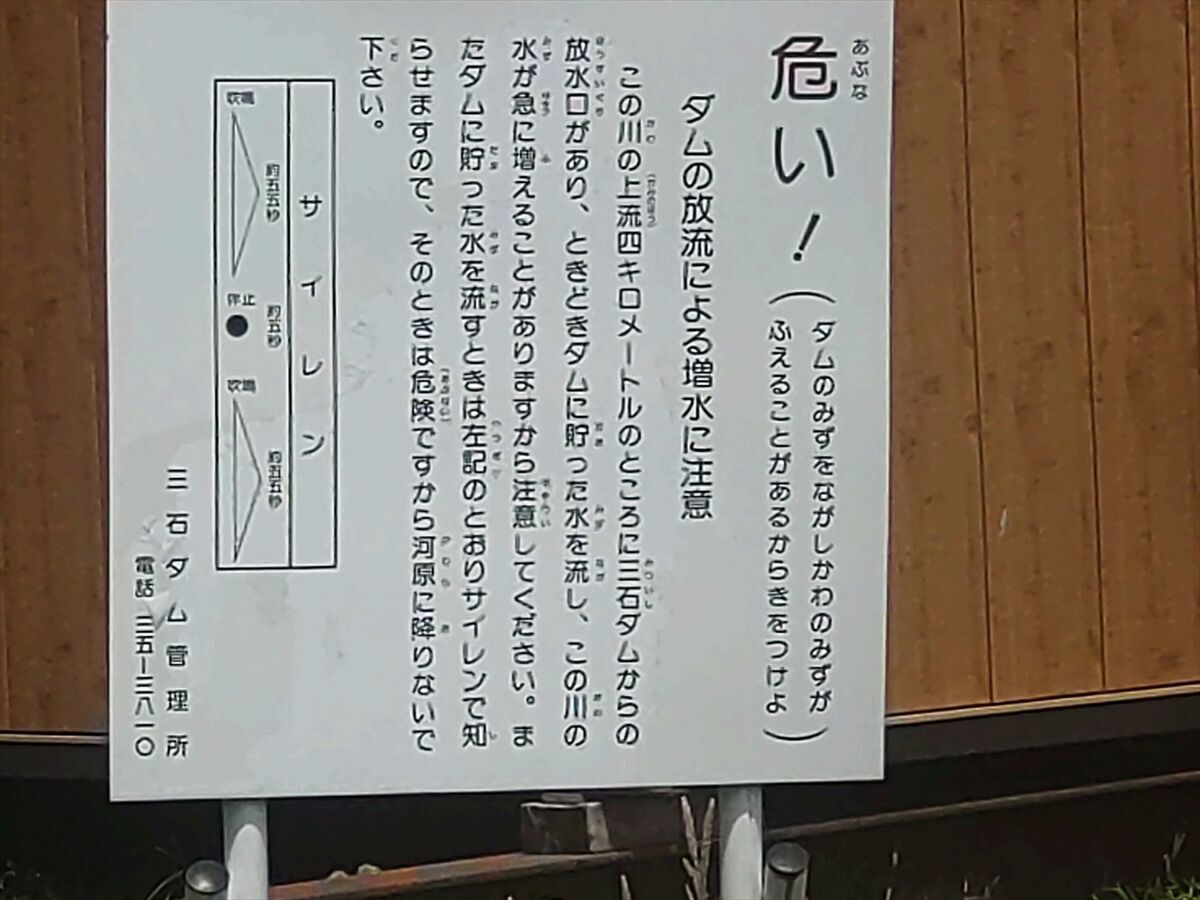 危い！（ダムのみずをながしかわのみずが
ふえることがあるからきをつけよ）
ダムの放流による増水に注意
この川の上流四キロメートルのところに三石ダムからの
放水口があり、ときどきダムに貯った水を流し、この川の
水が急に増えることがありますから注意してください。ま
たダムに貯った水を流すときは左記のとおりサイレンで知
らせますので、そのときは危険ですから河原に降りないで
下さい。
サイレン
吹鳴 約五五秒
停止 約五秒
吹鳴 約五五秒
三石ダム管理所
電話 三五－三八一〇